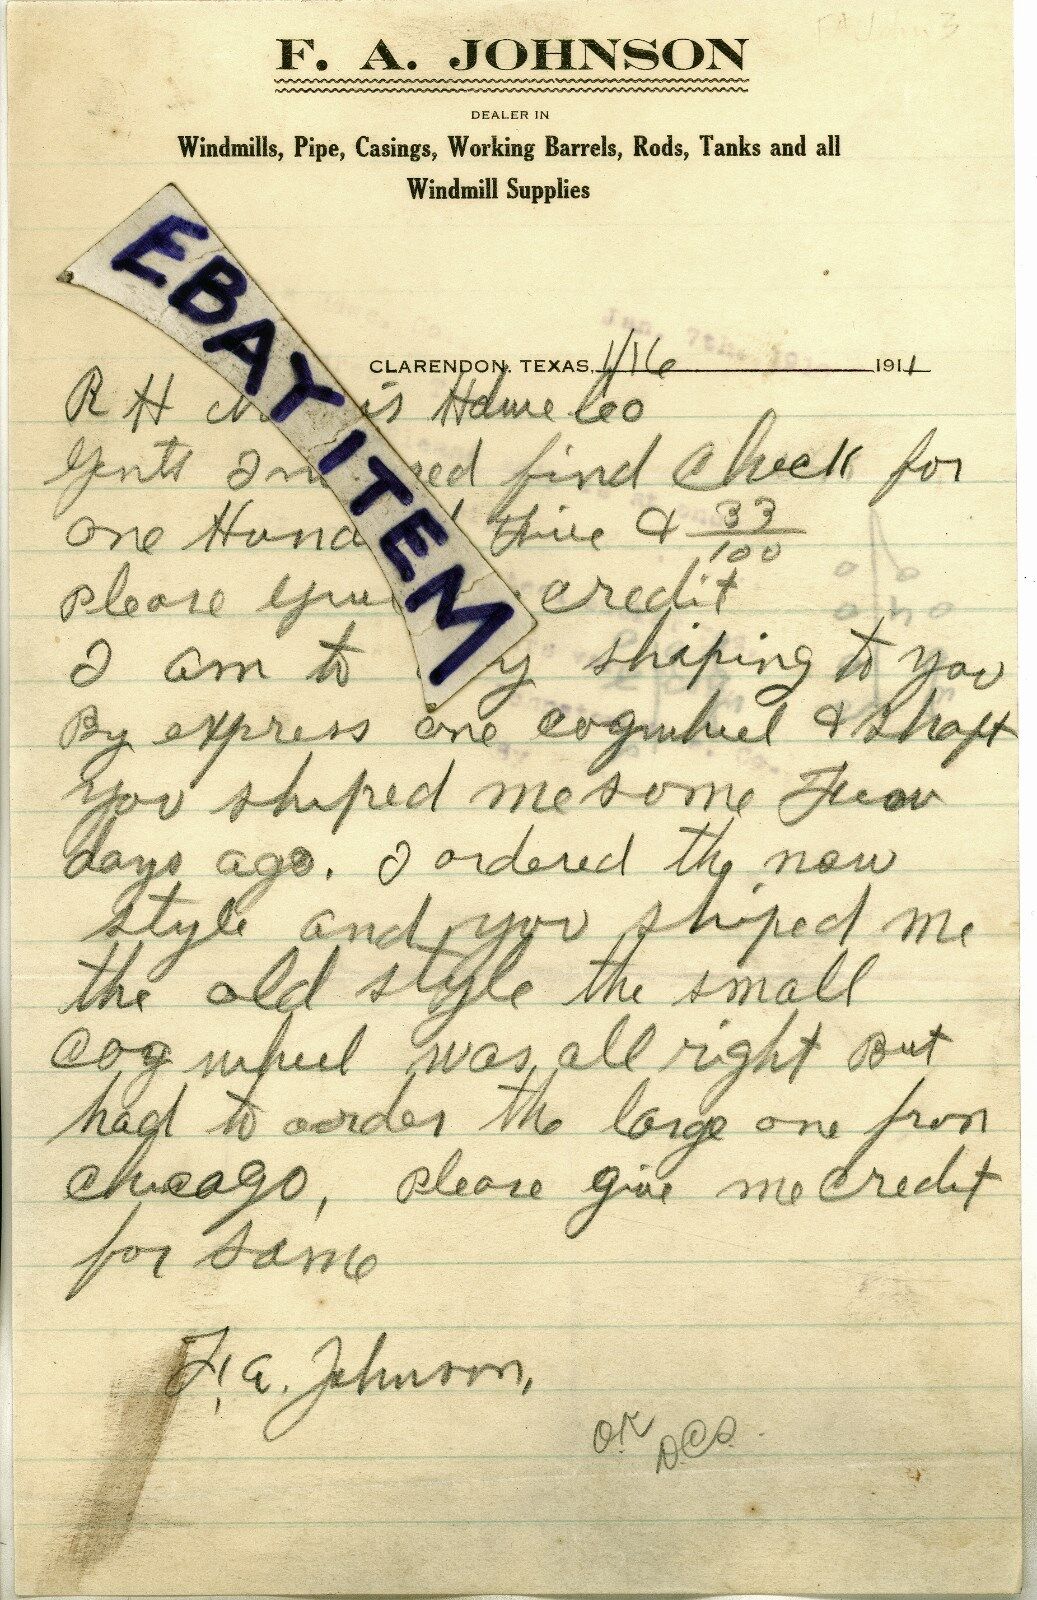 F. A. JOHNSON
DEALER IN
Windmills, Pipe, Casings, Working Barrels, Rods, Tanks and all
Windmill Supplies
EBAY ITEM
CLARENDON, TEXAS, 1/16 1911
R H is Co
Gents find check for
one & 33/100
please credit
I am to shiping to you
By express one cogwheel & shaft
you shiped me some
days ago. I ordered the new
style and you shiped me
the old style the small
cog wheel was all right But
had to oorder the large one from
chicago, please give me credit
for same
F. A. Johnson,
OK
DCS.